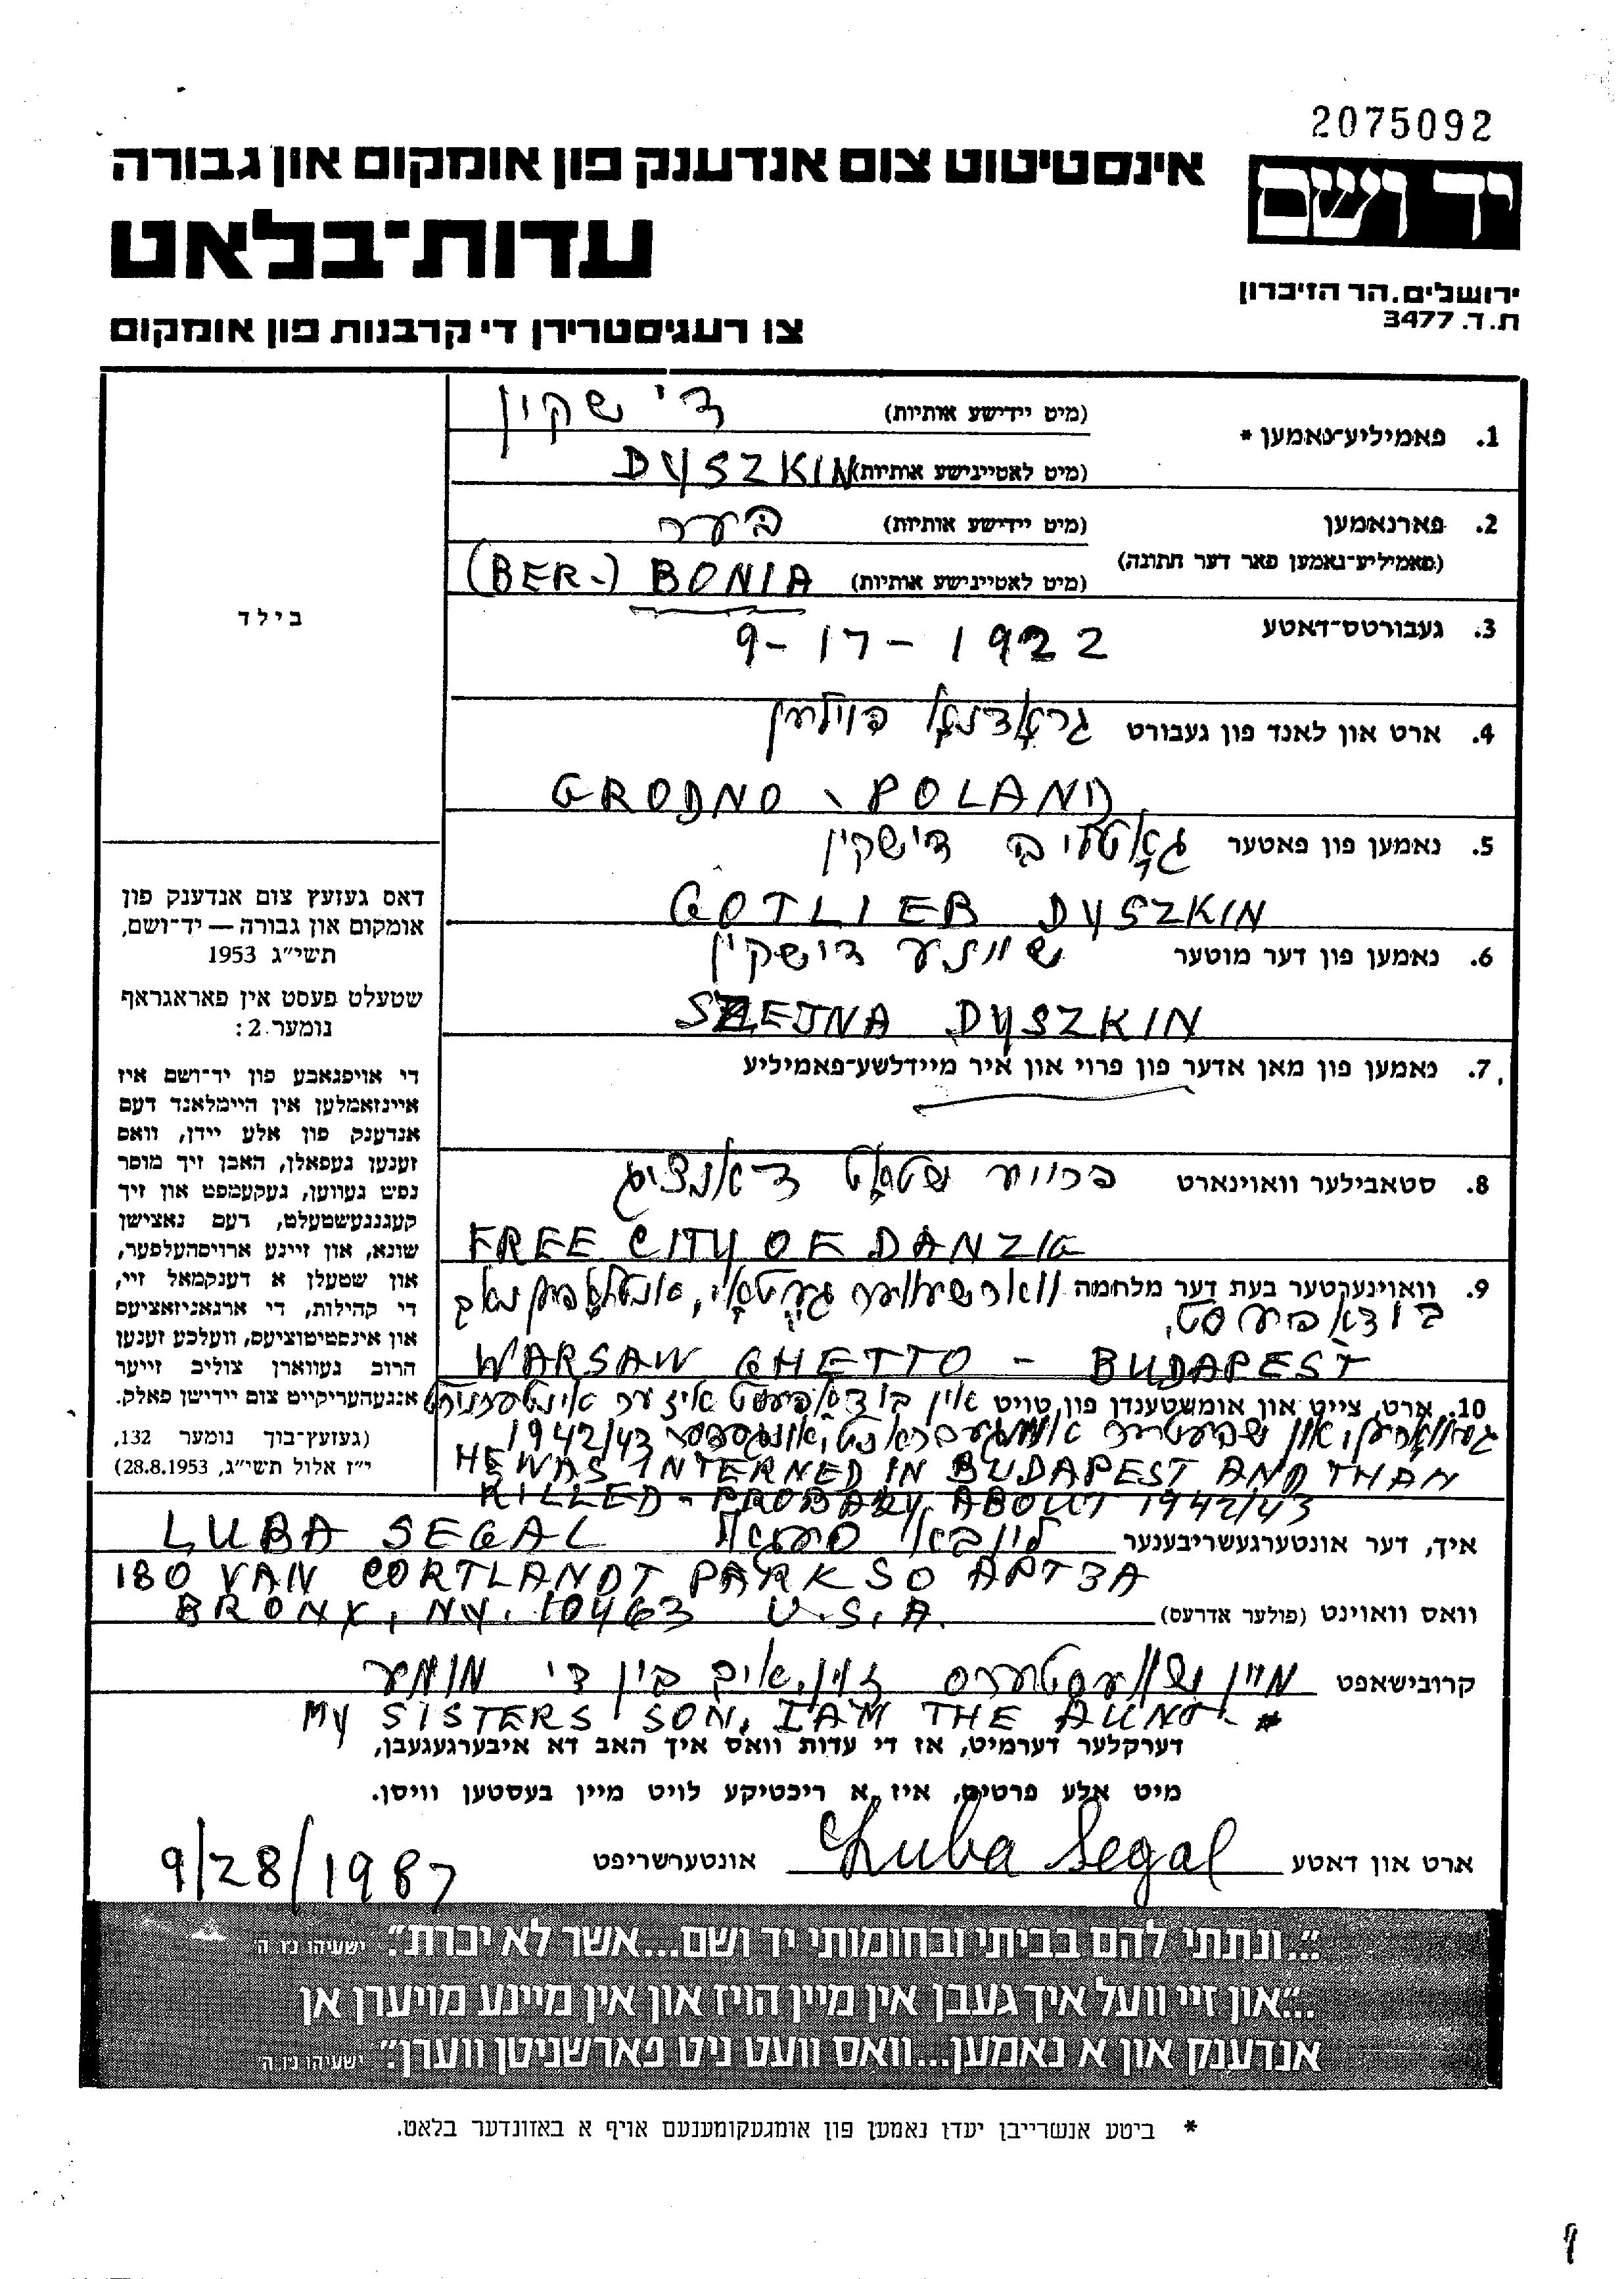 2075092
יד ושם
ירושלים. הר הזיכרון
ת.ד. 3477
אינסטיטוט צום אנדענק פון אומקום און גבורה
עדות-בלאט
צו רעגיסטרירן די קרבנות פון אומקום
1. פאמיליע־נאמען * (מיט יידישע אותיות) דישקין
(מיט לאטייגישע אותיות) DYSZKIN
2. פארנאמען (מיט יידישע אותיות) בער
(פאמיליע־נאמען פאר דער חתונה) (מיט לאטייגישע אותיות) (BER-) BONIA
3. געבורטס־דאטע 9-17-1922
4. ארט און לאנד פון געבורט גראָדנאָ פוילען
GRODNO, POLAND
5. נאמען פון פאטער גאָטליב דישקין
GOTLIEB DYSZKIN
6. נאמען פון דער מוטער דישקין
SZEJNA DYSZKIN
7. נאמען פון מאן אדער פון פרוי און איר מיידלשע־פאמיליע
8. סטאבילער וואוינארט פרייע שטאט דאנציג
FREE CITY OF DANZIG
9. וואוינערטער בעת דער מלחמה ווארשעווער געטאָ, אנטלאָפען נאך
בודאפעסט,
WARSAW GHETTO - BUDAPEST
10. ארט, צייט און אומשטענדן פון טויט אין בודאפעסט איז ער אינטערנירט
געוואָרען, און שפעטער אומגעבראכט, אונגעפער 1942/43
HE WAS INTERNED IN BUDAPEST AND THAN
KILLED - PROBABLY ABOUT 1942/43
בילד
דאס געזעץ צום אנדענק פון
אומקום און גבורה — יד־ושם,
תשי"ג 1953
שטעלט פעסט אין פאראגראף
נומער 2:
די אויפגאבע פון יד־ושם איז
איינזאמלען אין היימלאנד דעם
אנדענק פון אלע יידן, וואס
זענען געפאלן, האבן זיך מוסר
נפש געווען, געקעמפט און זיך
קעגנגעשטעלט, דעם נאצישן
שונא, און זיינע ארויסהעלפער,
און שטעלן א דענקמאל זיי,
די קהילות, די ארגאניזאציעס
און אינסטיטוציעס, וועלכע זענען
הרוב געווארן צוליב זייער
אנגעהעריקייט צום יידישן פאלק.
(געזעץ־בוך נומער 132,
י"ז אלול תשי"ג, 28.8.1953)
איך, דער אונטערגעשריבענער ליובא סעגאל LUBA SEGAL
180 VAN CORTLANDT PARK SO APT 3A
וואס וואוינט (פולער אדרעס) BRONX, NY. 10463 U.S.A.
קרובישאפט מיין שוועסטערס זון, איך בין די מומע
MY SISTERS SON, I AM THE AUNT- *
דערקלער דערמיט, אז די עדות וואס איך האב דא איבערגעגעבן,
מיט אלע פרטים, איז א ריכטיקע לויט מיין בעסטען וויסן.
ארט און דאטע Luba Segal אונטערשריפט 9/28/1987
"...ונתתי להם בביתי ובחומותי יד ושם...אשר לא יכרת." ישעיהו נ״ו ה׳
..."און זיי וועל איך געבן אין מיין הויז און אין מיינע מויערן אן
אנדענק און א נאמען...וואס וועט ניט פארשניטן ווערן." ישעיהו נ״ו ה׳
* ביטע אנשרייבן יעדן נאמען פון אומגעקומענעם אויף א באזונדער בלאט.